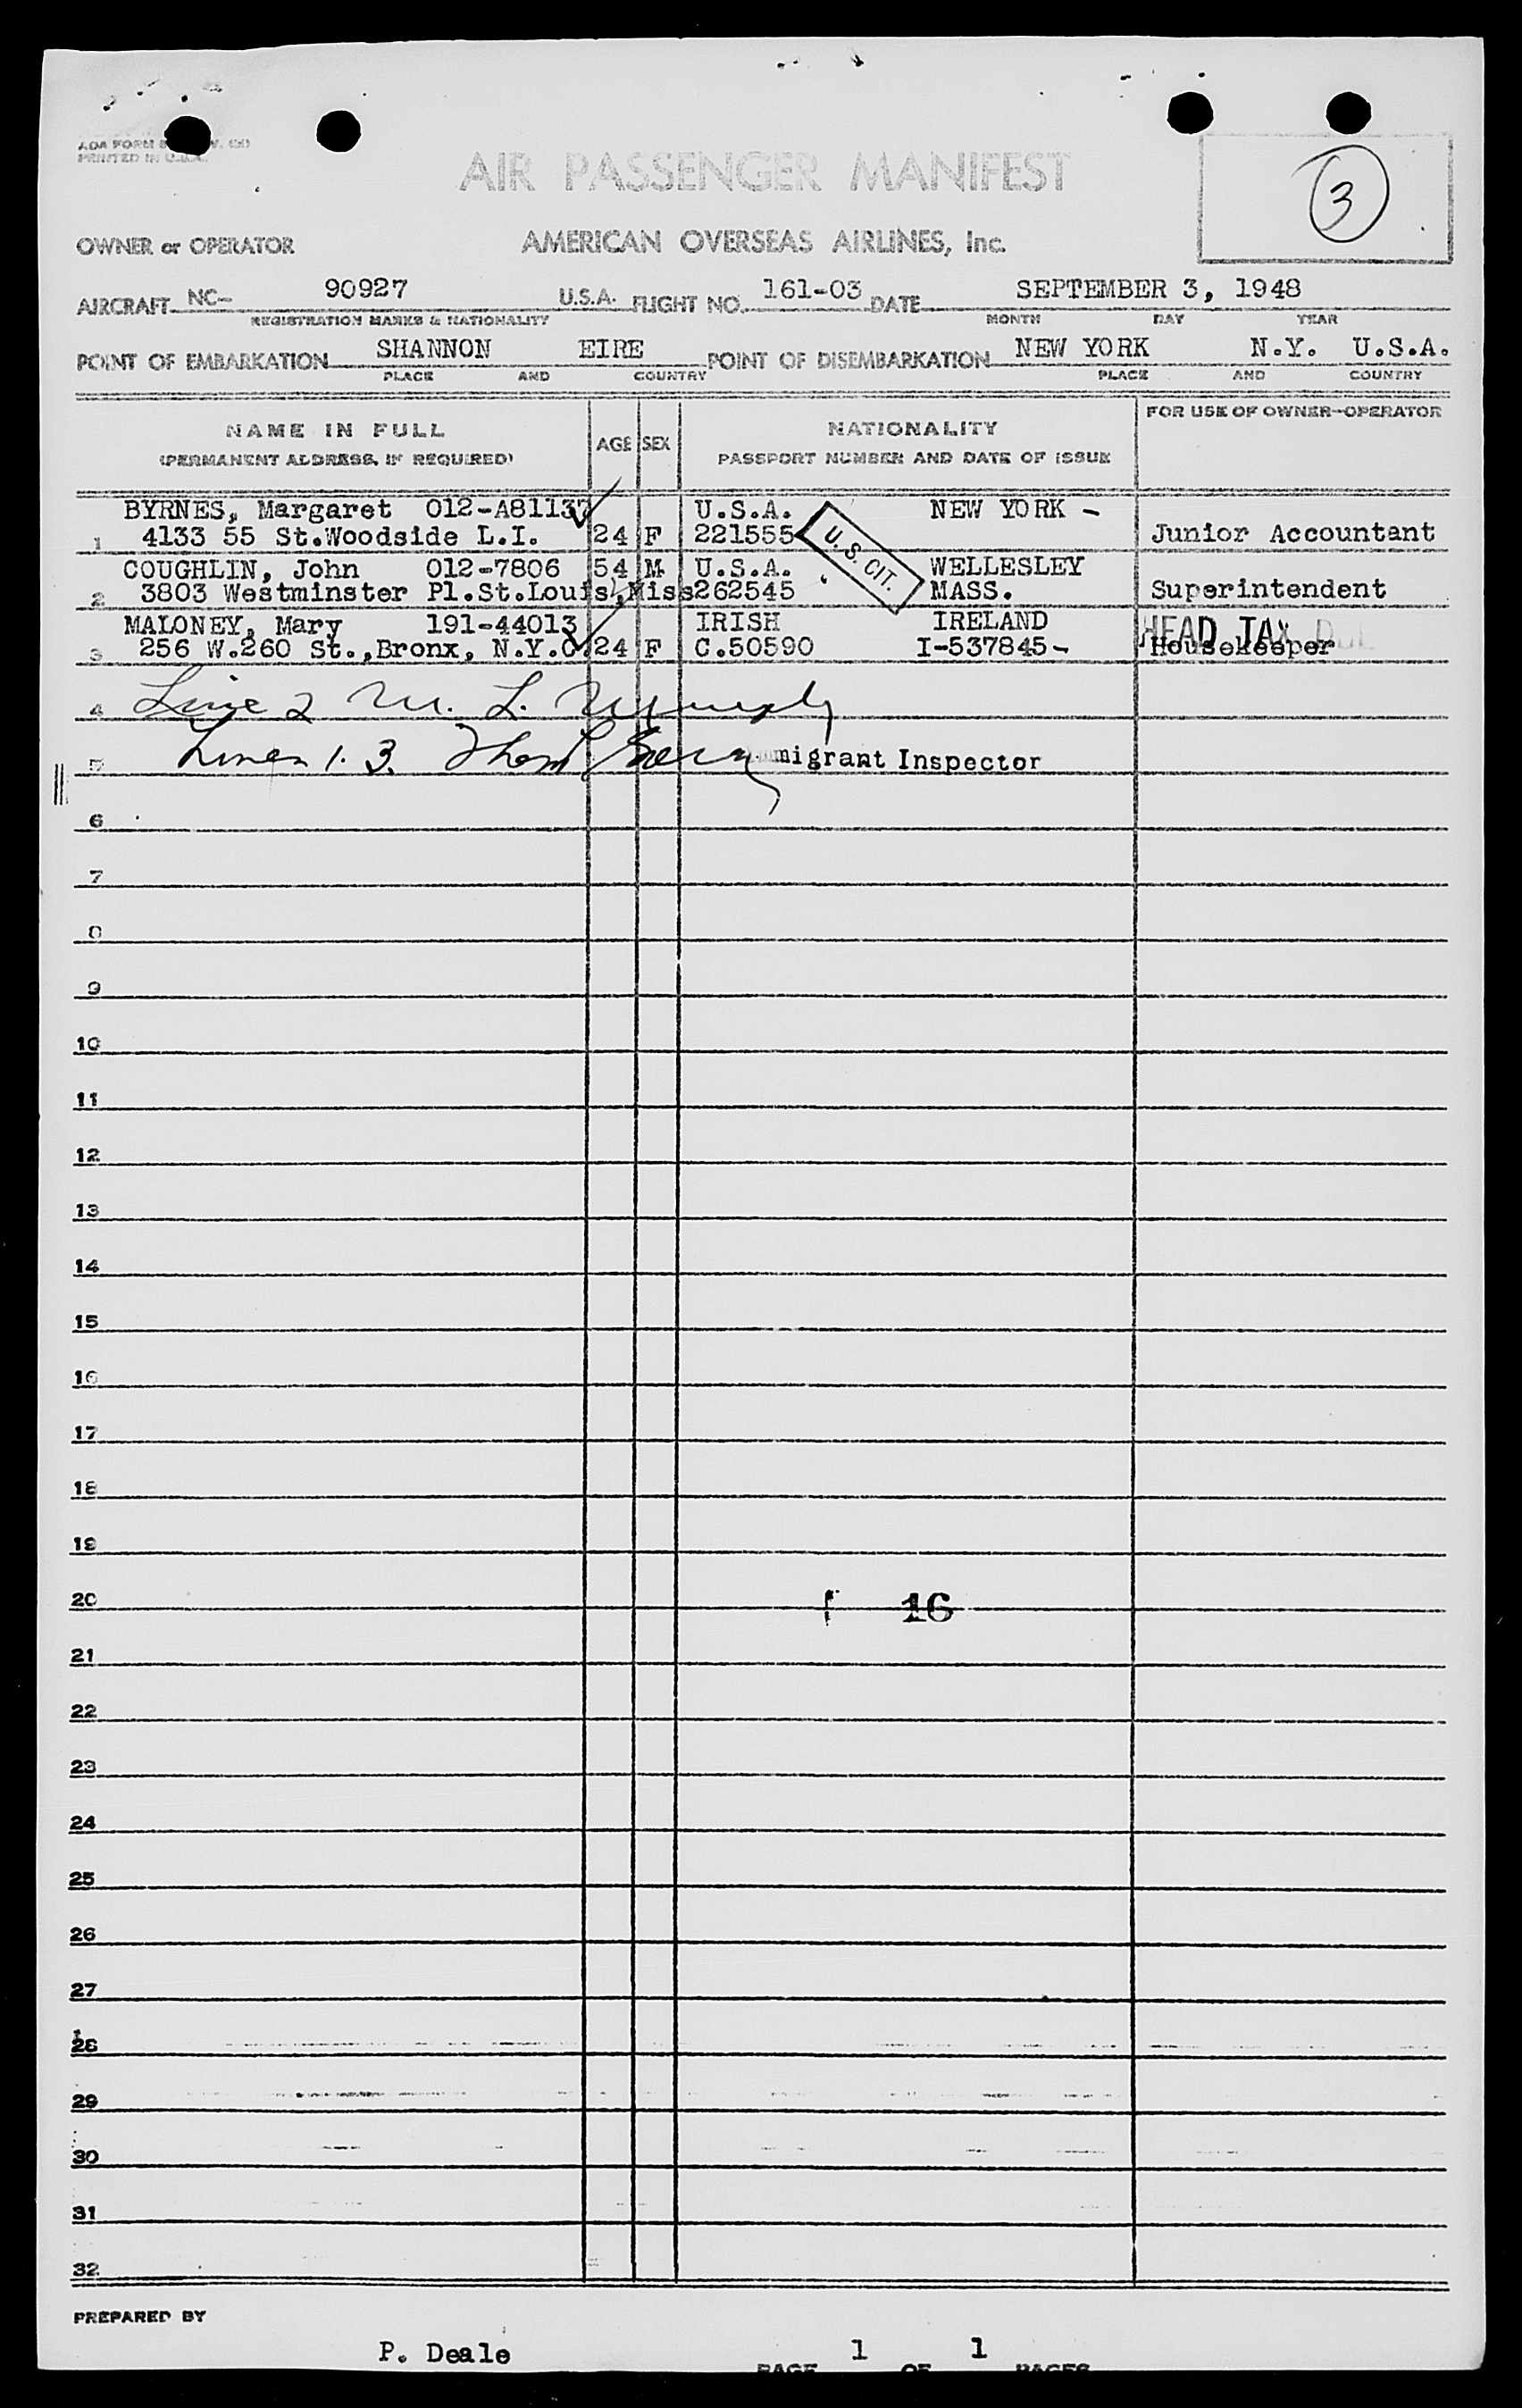 AOA FORM
PRINTED IN U.S.A.
AIR PASSENGER MANIFEST
3
OWNER or OPERATOR AMERICAN OVERSEAS AIRLINES, Inc.
AIRCRAFT NC- 90927 U.S.A. FLIGHT NO. 161-03 DATE SEPTEMBER 3, 1948
REGISTRATION MARKS & NATIONALITY MONTH DAY YEAR
POINT OF EMBARKATION SHANNON EIRE POINT OF DISEMBARKATION NEW YORK N.Y. U.S.A.
PLACE AND COUNTRY PLACE AND COUNTRY
NAME IN FULL AGE SEX NATIONALITY FOR USE OF OWNER-OPERATOR
(PERMANENT ADDRESS, IF REQUIRED) PASSPORT NUMBER AND DATE OF ISSUE
BYRNES, Margaret 012-A81137 U.S.A. NEW YORK -
1 4133 55 St.Woodside L.I. 24 F 221555 Junior Accountant
U.S. CIT.
COUGHLIN, John 012-7806 54 M U.S.A. WELLESLEY
2 3803 Westminster Pl.St.Louis,Miss 262545 MASS. Superintendent
MALONEY, Mary 191-44013 IRISH IRELAND HEAD TAX
3 256 W.260 St.,Bronx, N.Y.C. 24 F C.50590 I-537845- Housekeeper
4 Line 2 M. L. Murphy
5 Lines 1. 3. migrant Inspector
6
7
8
9
10
11
12
13
14
15
16
17
18
19
20 16
21
22
23
24
25
26
27
28
29
30
31
32
PREPARED BY
P. Deale PAGE 1 OF 1 PAGES